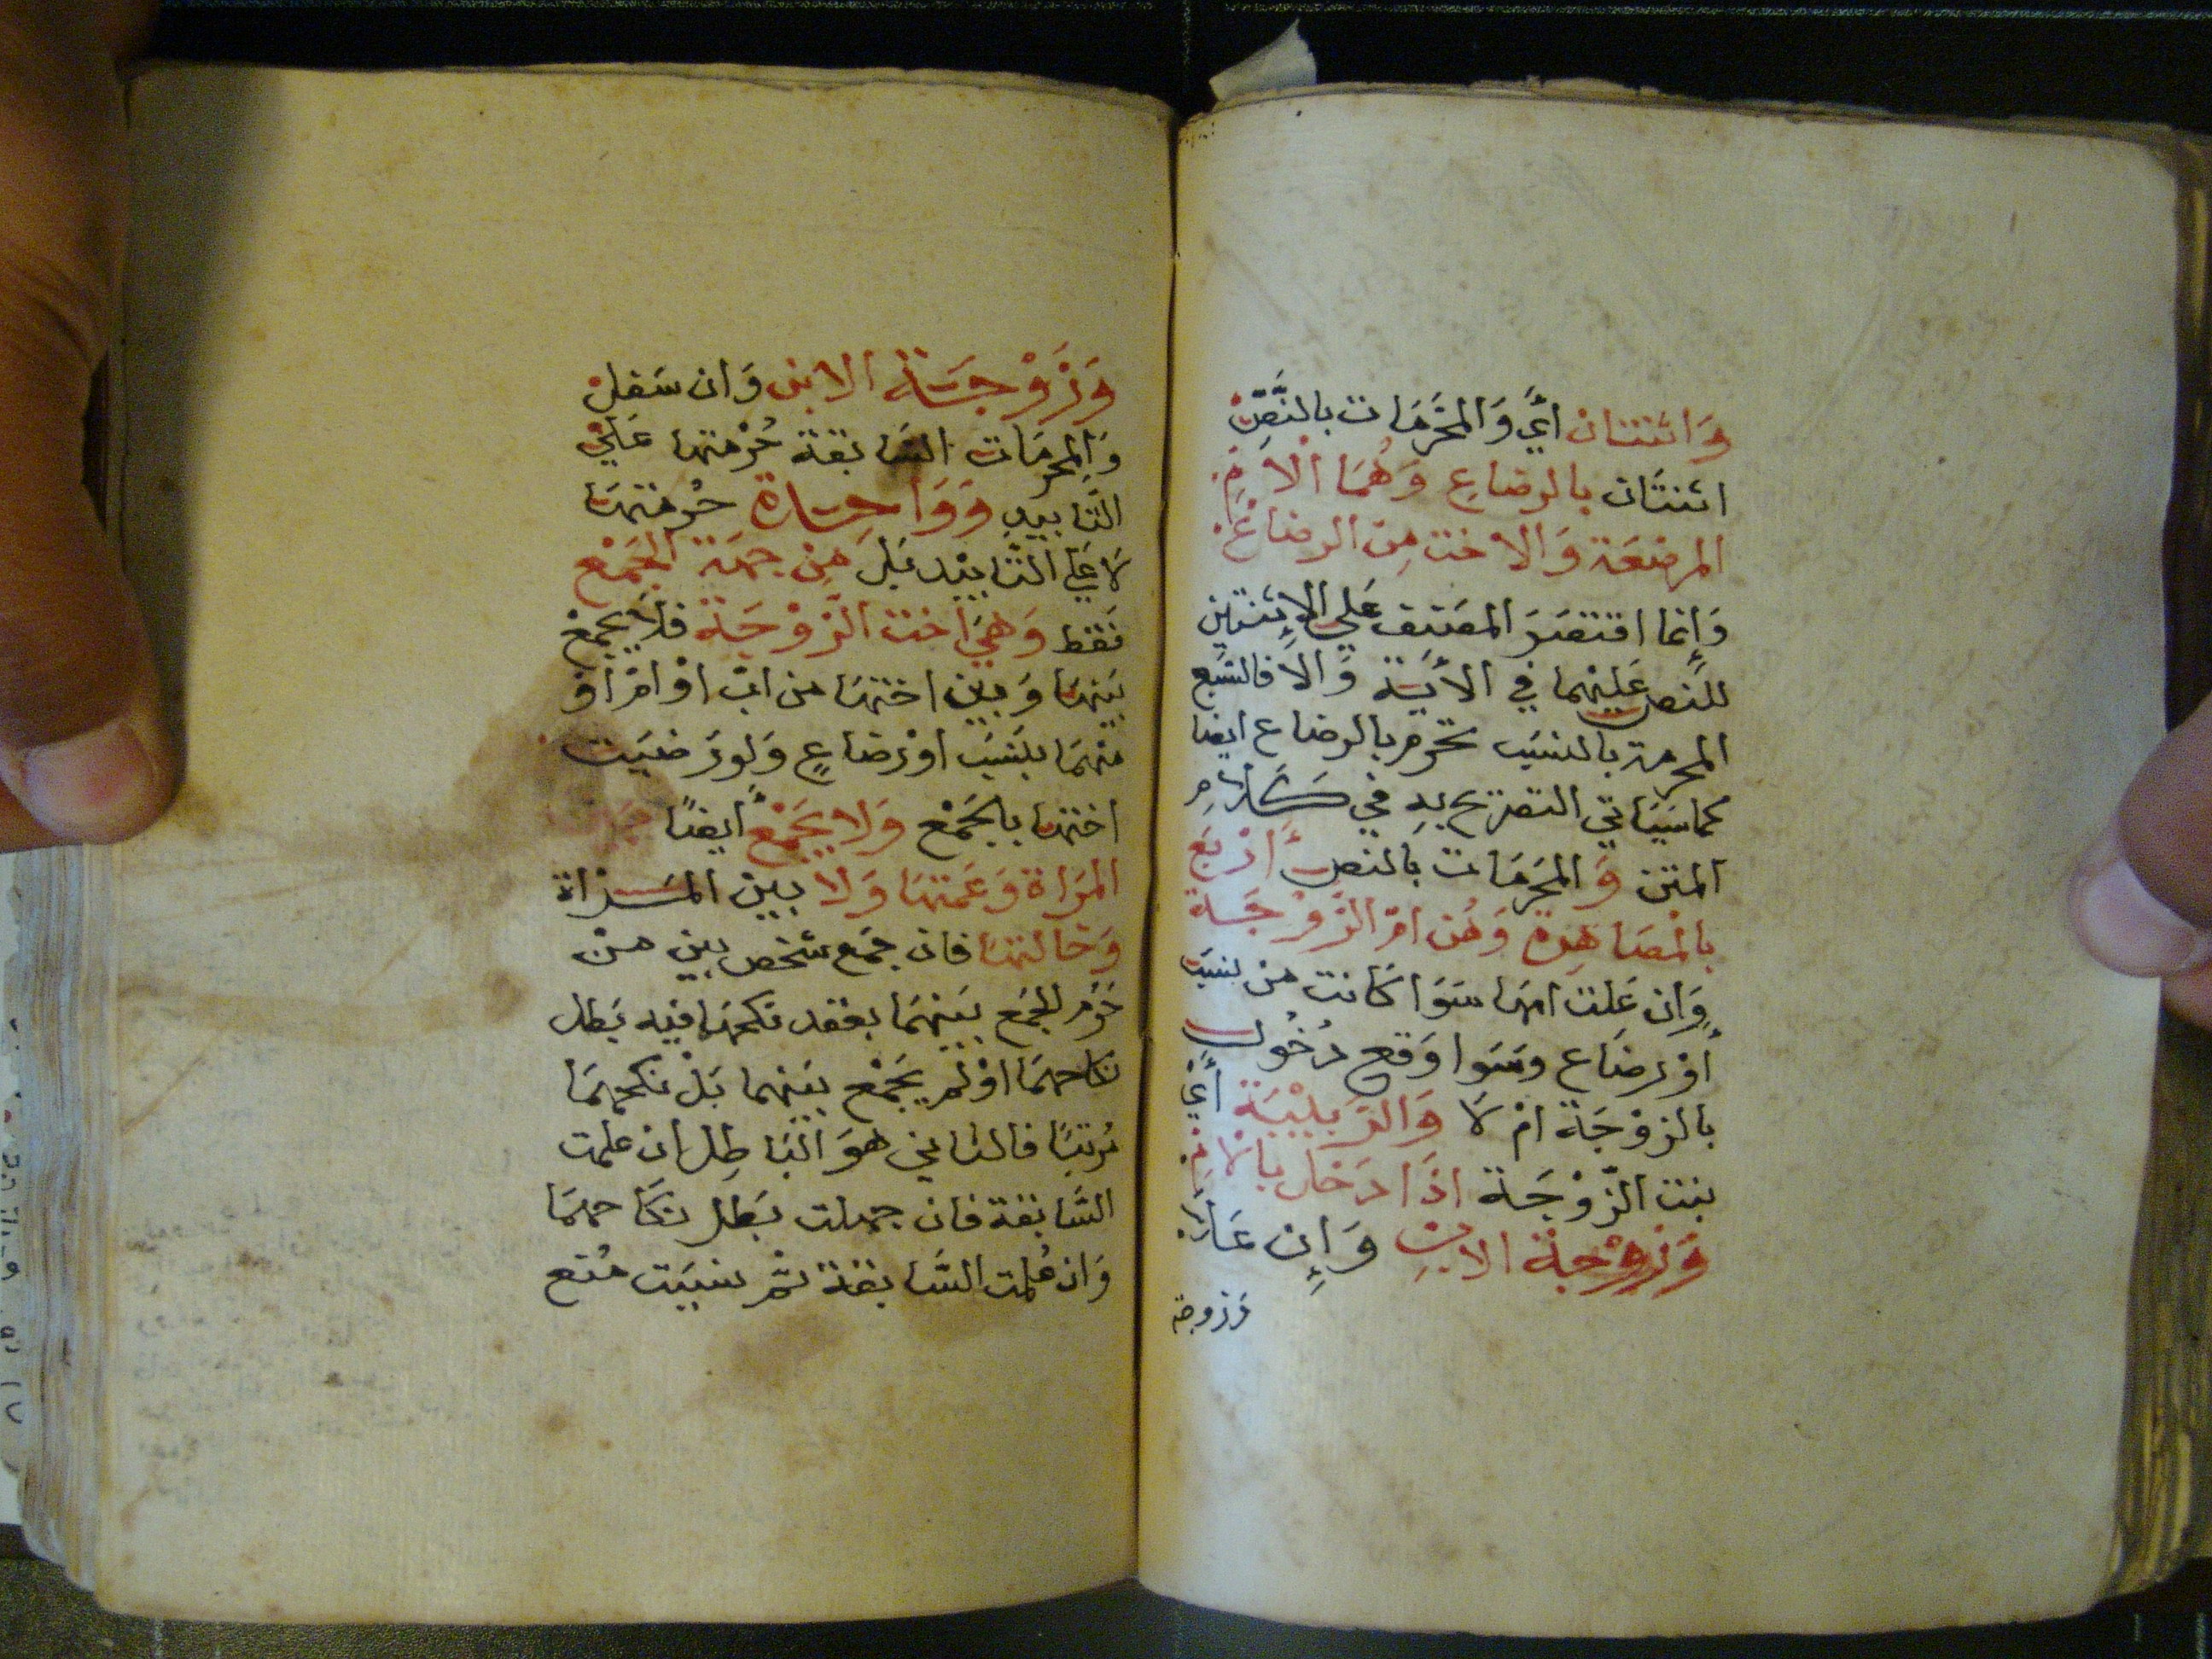 وَاثنتان أيّ وَالمحَرَّمَات بالنَّصِّ
اثنتان بالرضاعِ وَهُمَا الأمّ
المرضعَة وَالاخت مِن الرضاع
وَإنما اقتصَرَ المصَنف عَلي الإثنتين
للنص عَليْهما في الأيَة وَالا فالسَّبع
المحرمة بالنسَب تحرم بالرضاع ايضا
كماسَيَاتي التصريح به في كَلَامِ
المتن وَالمحَرمَات بالنص أرْبَع
بالْمصَاهرة وَهُن امّ الزَّوْجَة
وَإن عَلت امهَا سَوَا كَانت من نسَب
أوْ رضَاع وسَوا وَقع دُخُول
بالزوْجَة امْ لَا وَالرَّبيْبَة أيْ
بنت الزّوْجَة اذَا دَخل بالأم
وَزوْجَة الاب وَإن عَلا
وزوجة
وَزَوْجَة الابن وَان سَفل
وَالمحرمَات السَّابقة حُرْمتها عَليْ
التَّابيدِ وَوَاحِدَة حُرمتهَا
لَا عَلي التَّابيْد بَل مِنْ جهَة الجَمْع
فقط وَهيَ اخت الزَّوْجَة فلَا يجمعْ
بَينهَا وَبين اختهَا من ابّ اوْ امّ اوْ
منهمَا بنَسَب اوْ رضَاعٍ وَلو رَضيَت
اختهَا بالجَمْع وَلَا يجَمْع أيضًا
المرَاة وَعَمتهَا وَلَا بين المرْاة
وَخالتهَا فان جمَع شخص بين منْ
حَرم الجمَع بَينهمَا بعَقد نكحهَا فيه بَطل
نكاحهمَا اوْ لم يجَمْع بيَنهما بَلْ نكحهمَا
مُرتبًا فالثاني هوَ البَاطِل ان علمت
السَّابقة فان جهلت بَطل نكَاحهمَا
وَان عُلمت السَّابقة ثم نسيَت مُنع